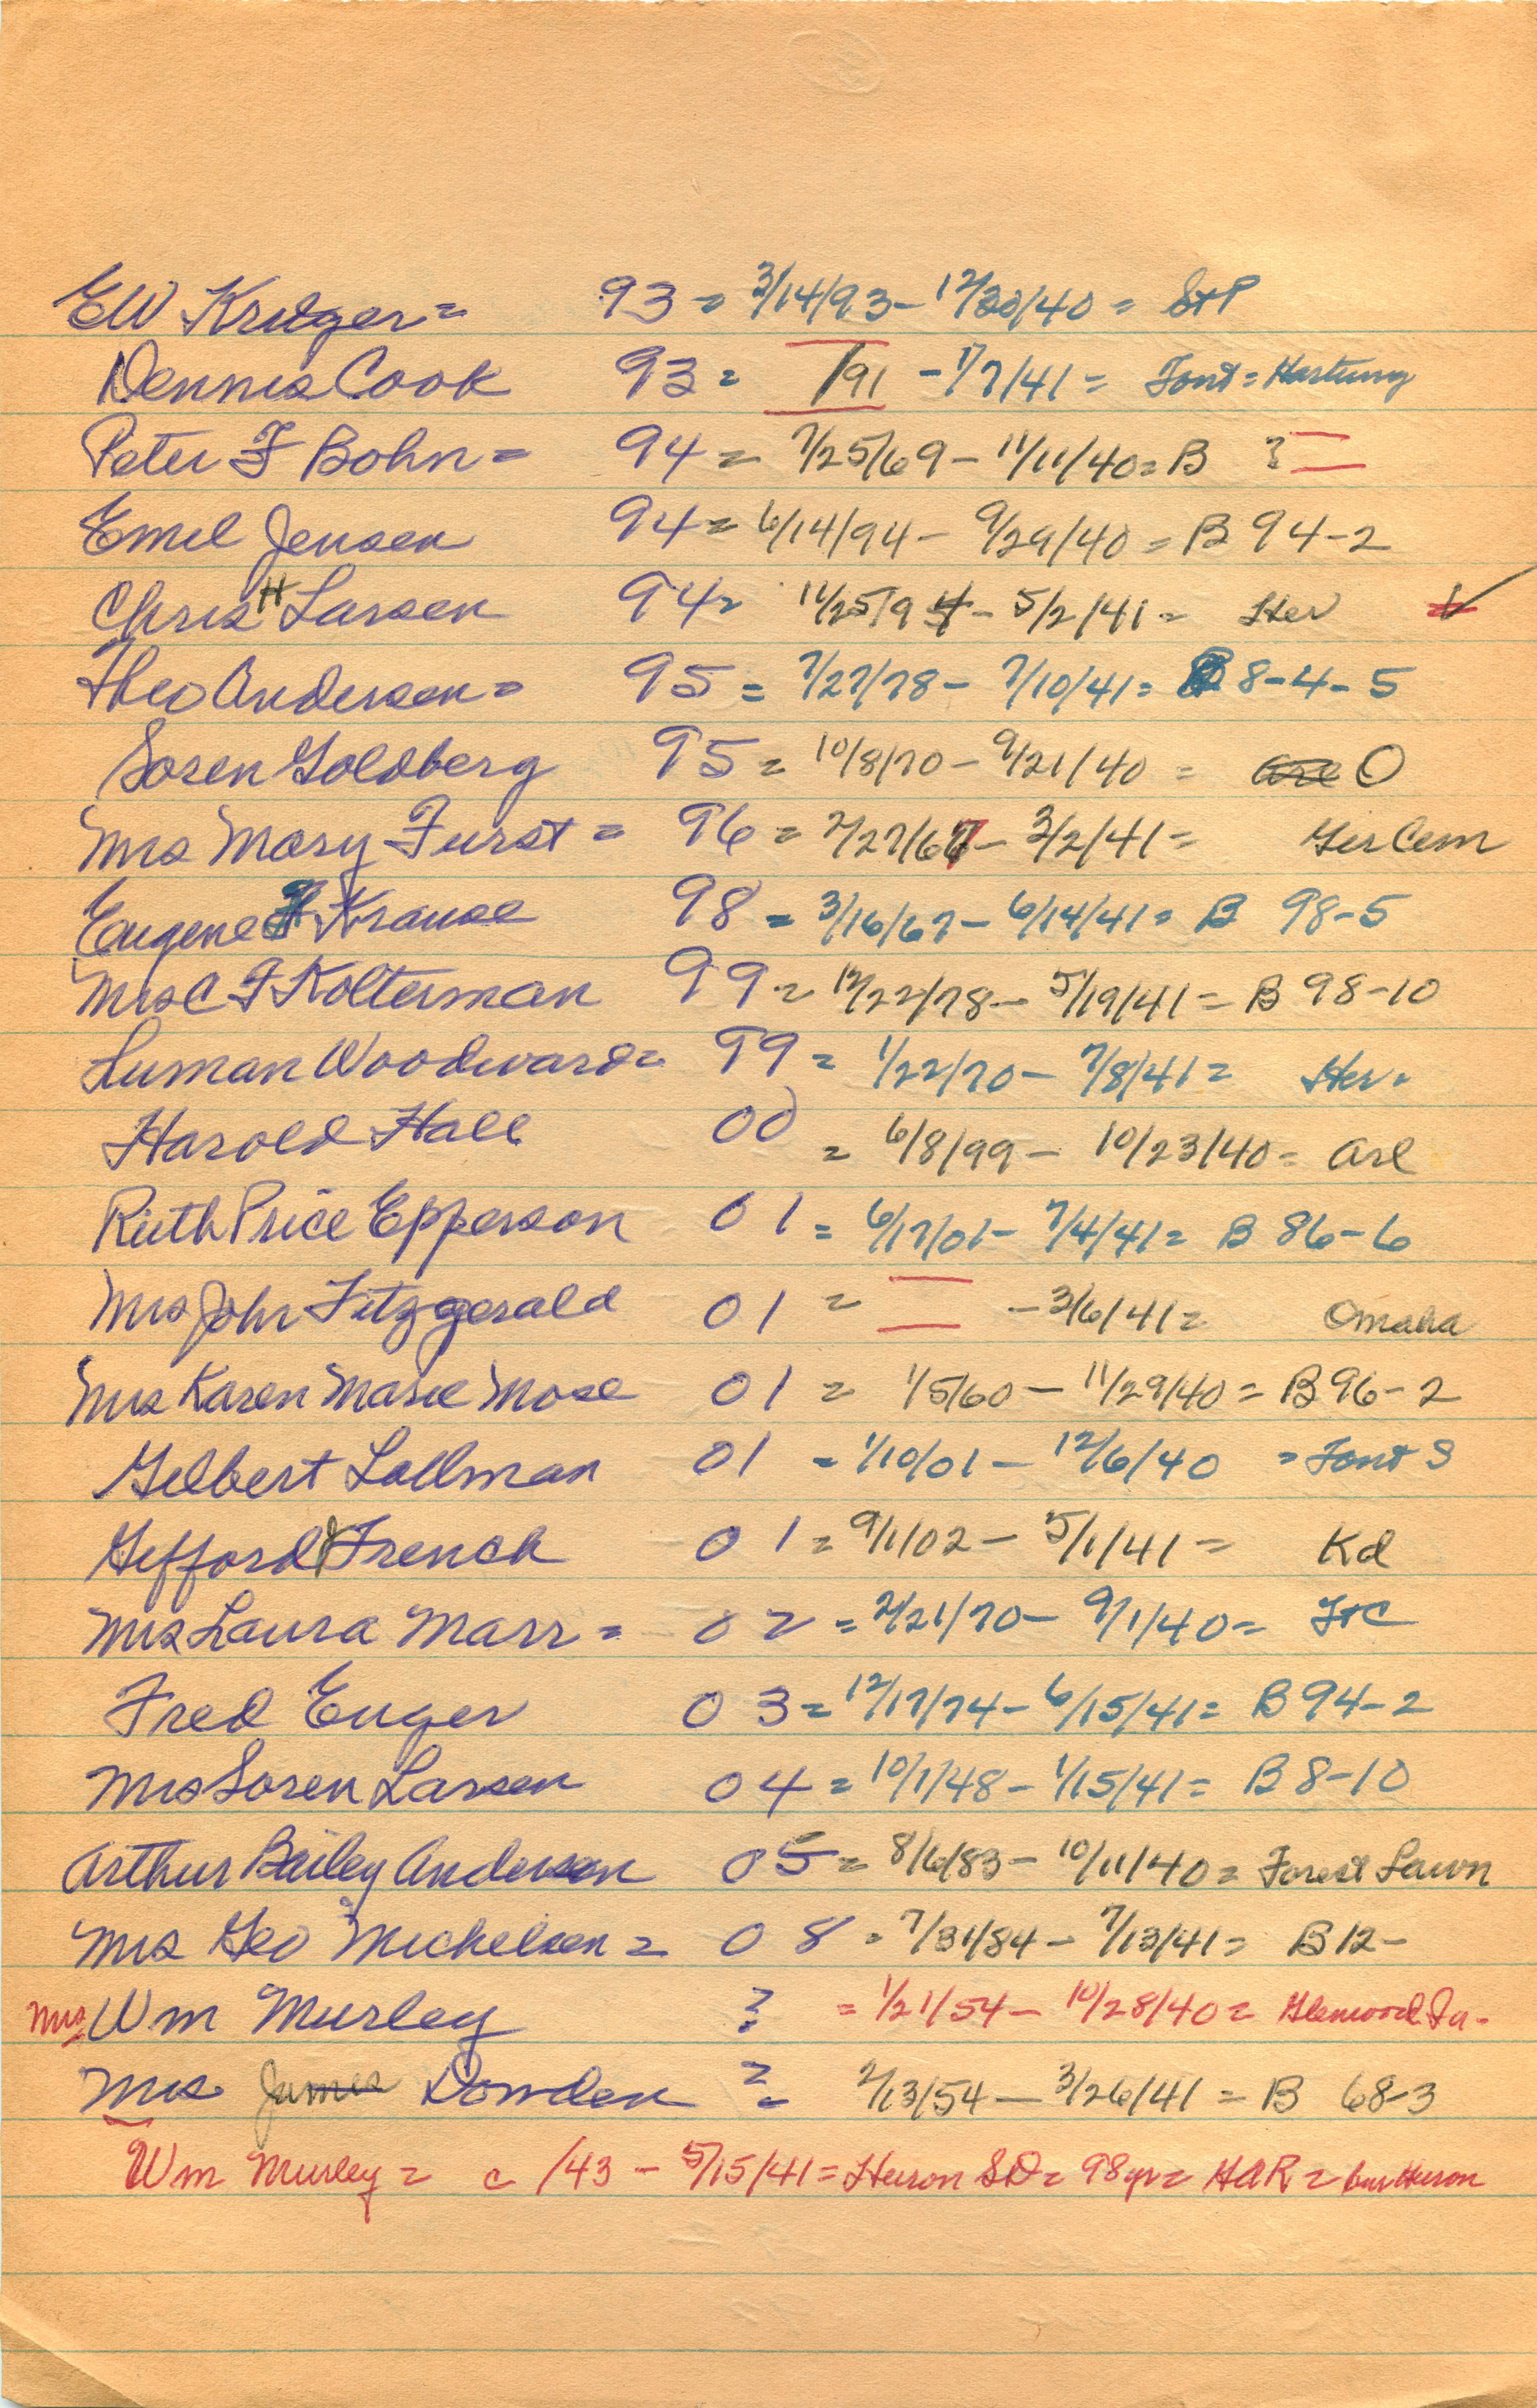 EW Kruger = 93 = 3/14/93 - 12/30/40 = St P
Dennis Cook 93 = /91 - 1/7/41 = Font = Hartung
Peter F Bohn = 94 = 7/25/69 - 11/11/40 = B ?
Emel Jensen 94 = 6/14/94 - 9/29/40 = B 94-2
Chris H Larsen 94 = 11/25/94 - 5/2/41 = Her
Theo Andersen = 95 = 7/27/78 - 7/10/41 = B 8-4-5
Soren Goldberg 95 = 10/8/70 - 9/21/40 = O
Mrs Mary Furst = 96 = 2/27/67 - 3/2/41 = Ger Cem
Eugene Krause 98 = 3/16/67 - 6/14/41 = B 98-5
Mrs C F Kolterman 99 = 12/22/78 - 5/19/41 = B 98-10
Luman Woodward = 99 = 1/22/70 - 7/8/41 = Her.
Harold Hall 00 = 6/8/99 - 10/23/40 = Arl
Ruth Price Epperson 01 = 6/17/01 - 7/4/41 = B 86-6
Mrs John Fitzgerald 01 = - 3/6/41 = Omaha
Mrs Karen Marie Mose 01 = 1/5/60 - 11/29/40 = B 96-2
Gilbert Lallman 01 = 1/10/01 - 12/6/40 = Font S
Gifford French 01 = 9/1/02 - 5/1/41 = Kd
Mrs Laura Marr = 02 = 2/21/70 - 9/1/40 = Ft C
Fred Euger 03 = 12/17/74 - 6/15/41 = B 94-2
Mrs Soren Larsen 04 = 10/1/48 - 1/15/41 = B 8-10
Arthur Bailey Anderson 05 = 8/6/83 - 10/11/40 = Forest Lawn
Mrs Geo Michelsen = 08 = 7/31/84 - 7/13/41 = B 12-
Mrs Wm Murley ? = 1/21/54 - 10/28/40 = Glenwood Ia.
Mrs James Dowden ? 2/13/54 - 3/26/41 = B 68-3
Wm Murley = c /43 - 5/15/41 = Huron SD = 98 yr = HAR = bur Huron